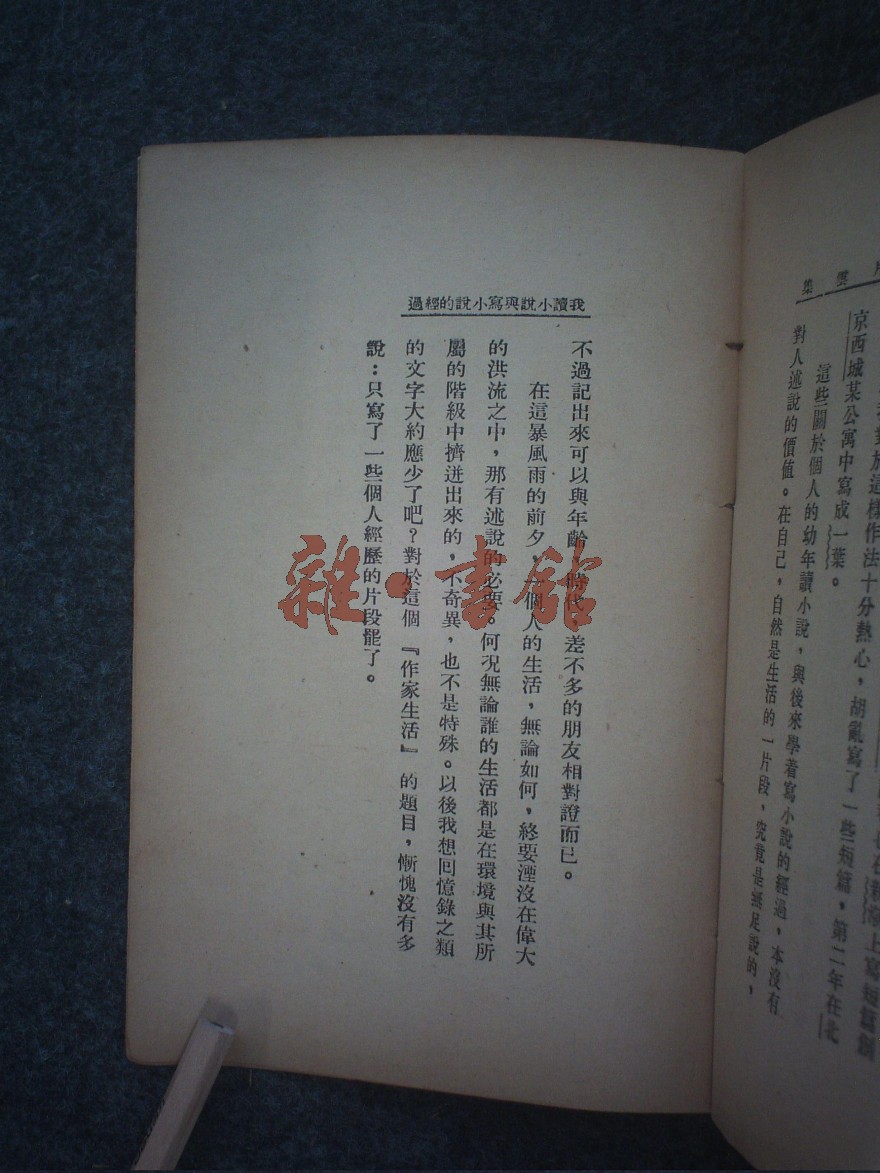 集
上寫短篇創
對於這樣作法十分熱心，胡亂寫了一些短篇，第二年在北
京西城某公寓中寫成一葉。
這些關於個人的幼年讀小說，與後來學着寫小說的經過，本沒有
對人述說的價值。在自己，自然是生活的一片段，究竟是無足說的，
過經的說小寫與說小讀我
不過記出來可以與年齡，時代，差不多的朋友相對證而已。
在這暴風雨的前夕，一個人的生活，無論如何，終要湮沒在偉大
的洪流之中，那有述說的必要。何況無論誰的生活都是在環境與其所
屬的階級中擠迸出來的，不奇異，也不是特殊。以後我想回憶錄之類
的文字大約應少了吧？對於這個『作家生活』的題目，慚愧沒有多
說：只寫了一些個人經歷的片段罷了。
雜·書館